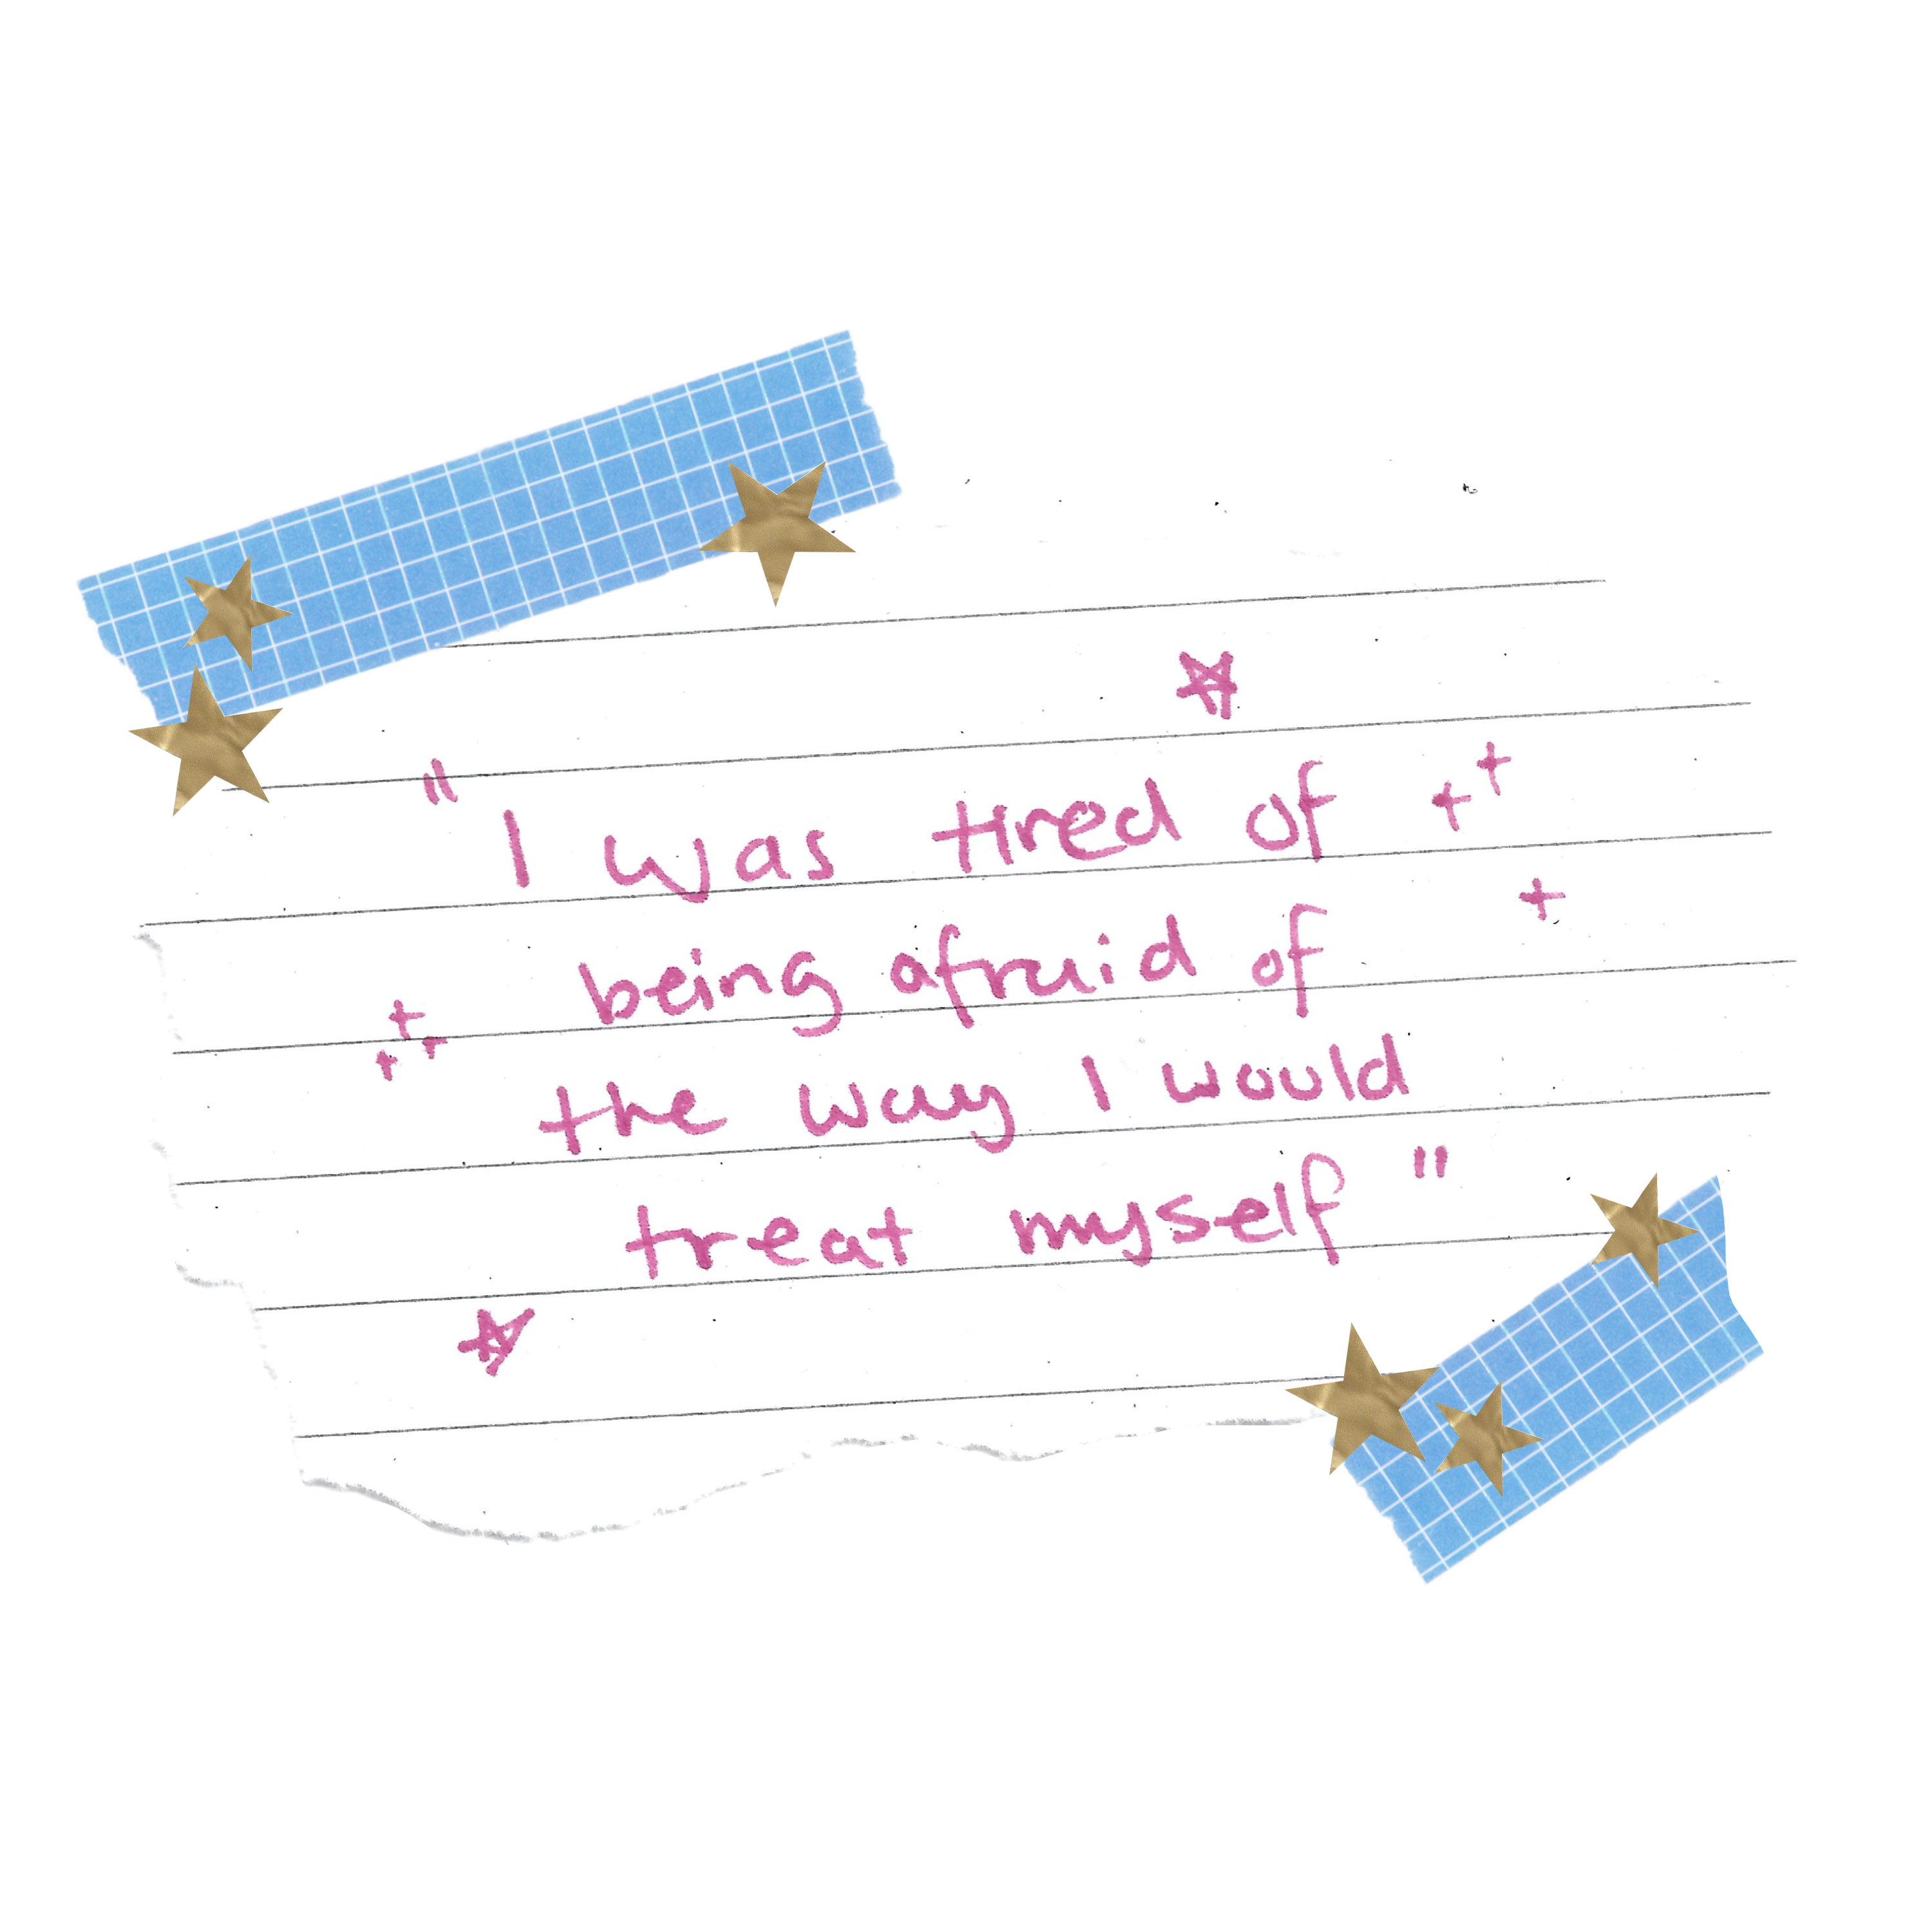 "I was tired of
being afraid of
the way I would
treat myself"